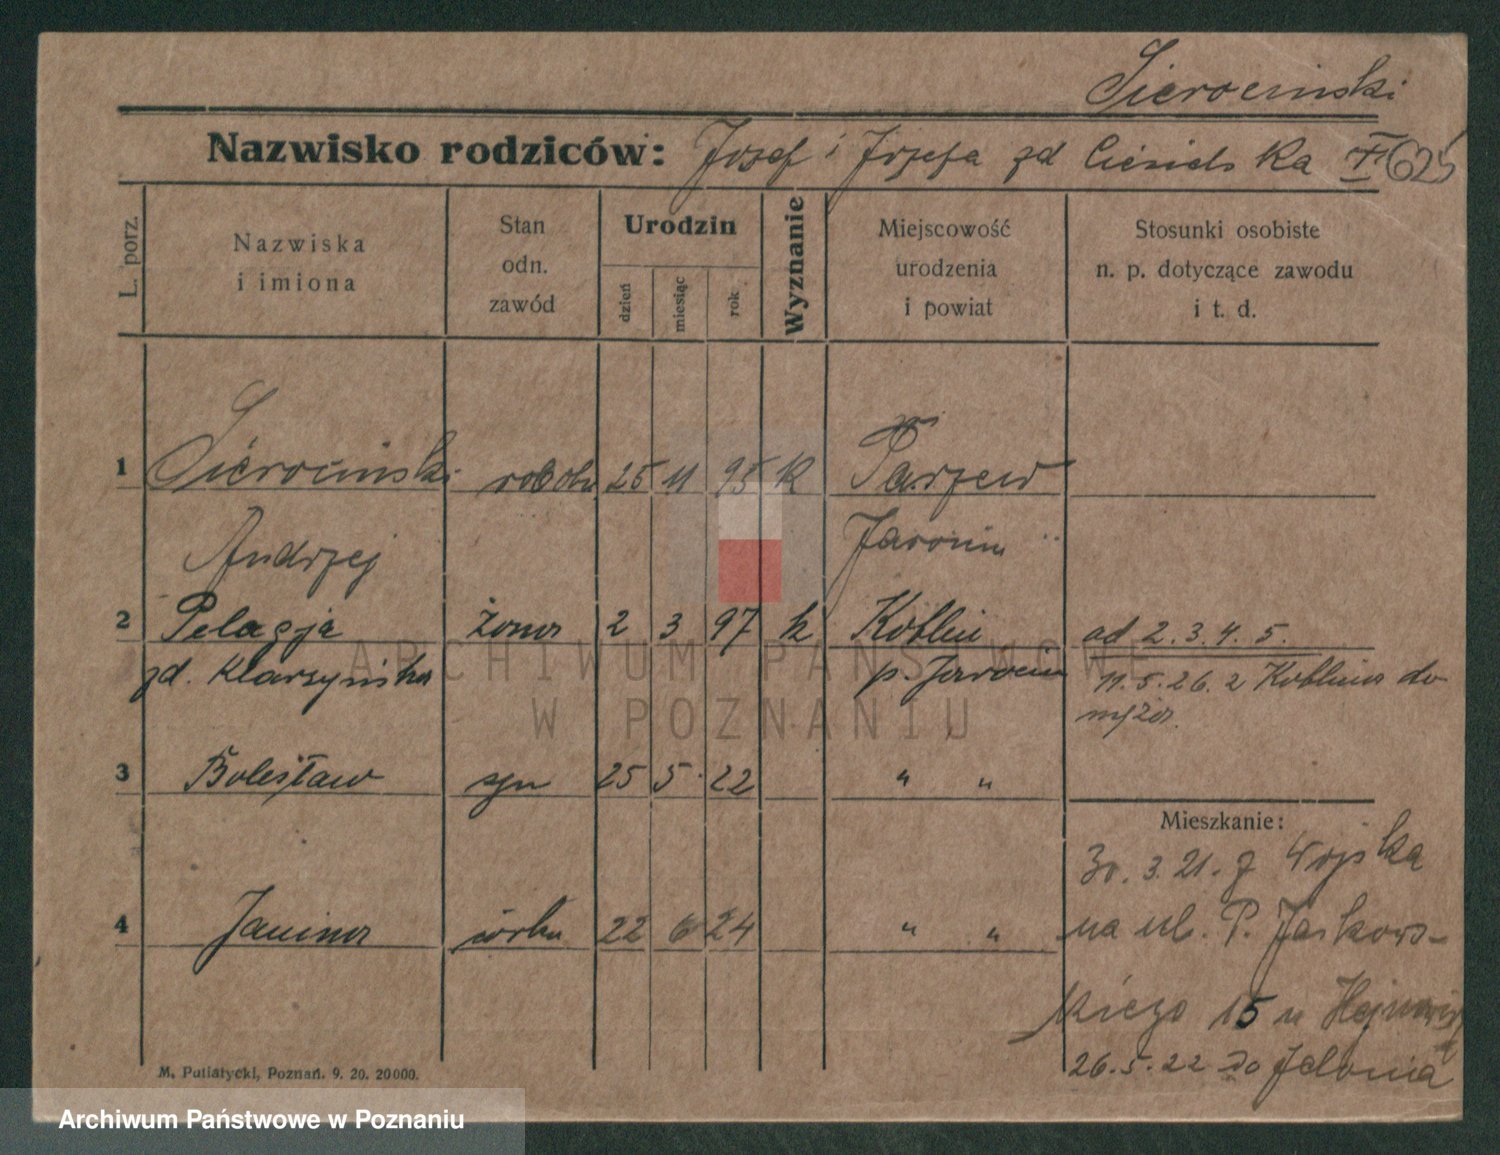 Sierociński
Nazwisko rodziców: Josef i Józefa zd Cieselska
L. porz.
Nazwiska i imiona
Stan odn. zawód
Urodzin
dzień
miesiąc
rok
Wyznanie
Miejscowość urodzenia i powiat
Stosunki osobiste n. p. dotyczące zawodu i t. d.
1 Sierociński robotn 25 11 95 k Parzew
Andrzej Jarocin
2 Pelagja żona 2 3 97 k Koblin ad 2. 3. 4. 5.
zd. p. Jarocin 11. 5. 26. z do
męża.
3 Bolesław syn 25 5. 22 " "
Mieszkanie:
30. 3. 21. z Wojska
4 Janina córka 22 6 24 " " na ul. P. Jaskows-
kiego 15 u
26. 5. 22 do
M. Putiatycki, Poznań. 9. 20. 20000.
ARCHIWUM PAŃSTWOWE
W POZNANIU
Archiwum Państwowe w Poznaniu